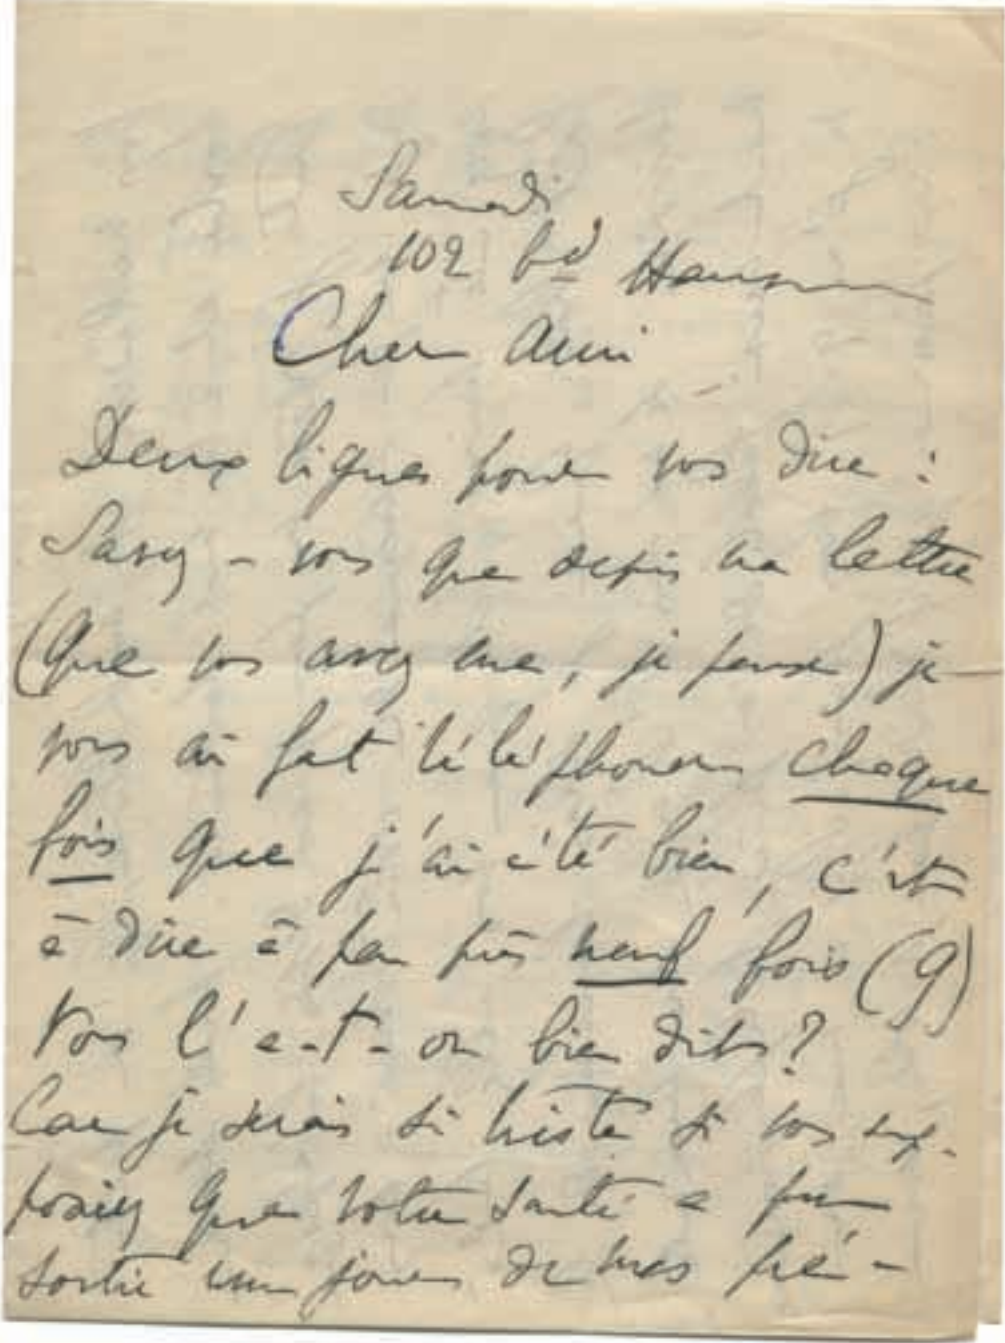 Samedi
102 bd Haussmann
Cher ami
Deux lignes pour vous dire :
Savez-vous que depuis ma lettre
(que vous avez eue, je pense) je
vous ai fait téléphoner chaque
fois que j'ai été bien, c'est
à dire à peu près neuf fois (9)
Vous l'a-t-on bien dit ?
Car je serais si triste si vous sup-
posiez que votre santé a pu
sortir un jour de mes pré-